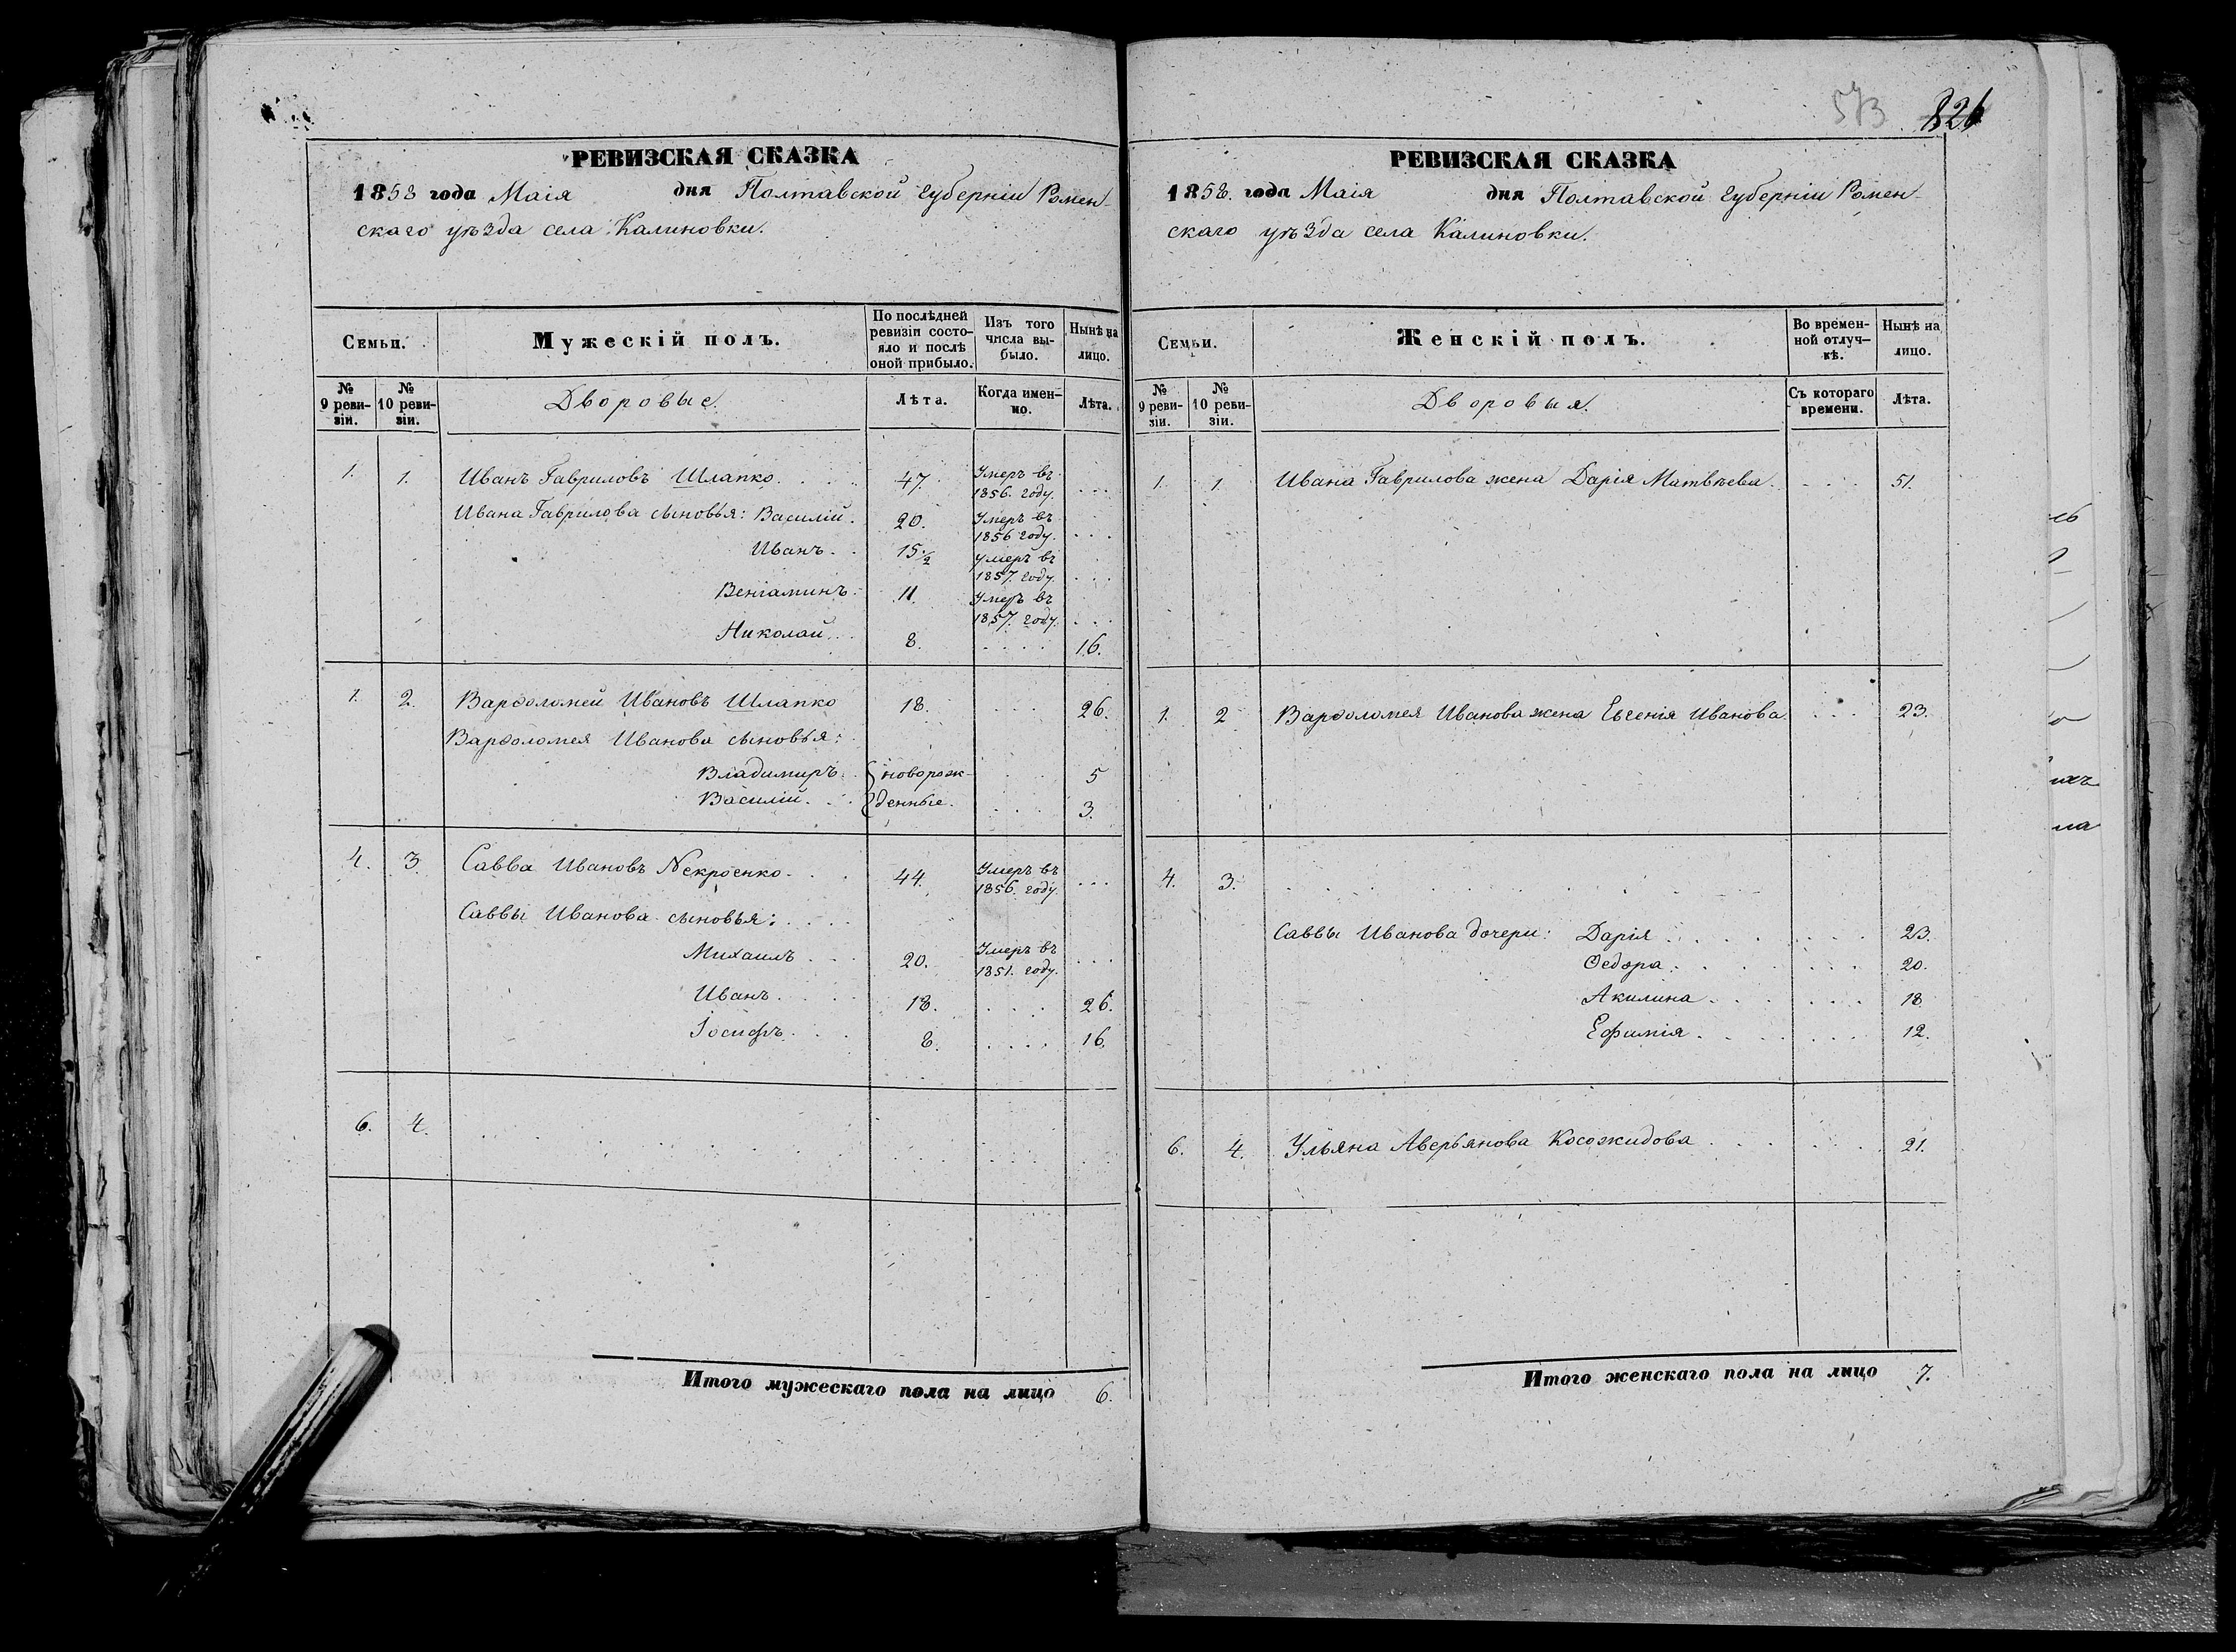 573 826
РЕВИЗСКАЯ СКАЗКА
1858 года Маія дня Полтавской губерніи Ромен-
скаго уѣзда села Калиновки.
Семьи. Мужескій полъ. По послѣдней ревизіи состояло и послѣ оной прибыло. Изъ того числа выбыло. Нынѣ на лицо.
№ 9 ревизіи. № 10 ревизіи. Дворовые. Лѣта. Когда именно. Лѣта.
1. 1. Иванъ Гавриловъ Шлапко. 47. Умеръ въ 1856. году.
Ивана Гаврилова сыновья: Василій. 20. Умеръ въ 1856 году.
Иванъ. 15 1/2 Умеръ въ 1857. году.
Веніаминъ. 11. Умеръ въ 1857. году.
Николай. 8. 16.
1. 2. Варѳоломей Ивановъ Шлапко 18. 26.
Варѳоломея Иванова сыновья:
Владимиръ. новорож- 5
Василій. денные. 3.
4. 3. Савва Ивановъ Некроенко. 44. Умеръ въ 1856. году.
Саввы Иванова сыновья:
Михаилъ 20. Умеръ въ 1851. году.
Иванъ. 18. 26.
Іосифъ. 8. 16.
6. 4.
Итого мужескаго пола на лицо 6.
РЕВИЗСКАЯ СКАЗКА
1858. года Маія дня Полтавской губерніи Ромен-
скаго уѣзда села Калиновки.
Семьи. Женскій полъ. Во временной отлучкѣ. Нынѣ на лицо.
№ 9 ревизіи. № 10 ревизіи. Дворовыя. Съ котораго времени. Лѣта.
1. 1. Ивана Гаврилова жена Дарія Матвѣева. 51.
1. 2 Варѳоломея Иванова жена Евгенія Иванова. 23.
4. 3.
Саввы Иванова дочери: Дарія 23.
Ѳедора. 20.
Акилина. 18
Ефимія. 12.
6. 4. Ульяна Аверьянова Косожидова 21.
Итого женскаго пола на лицо 7.